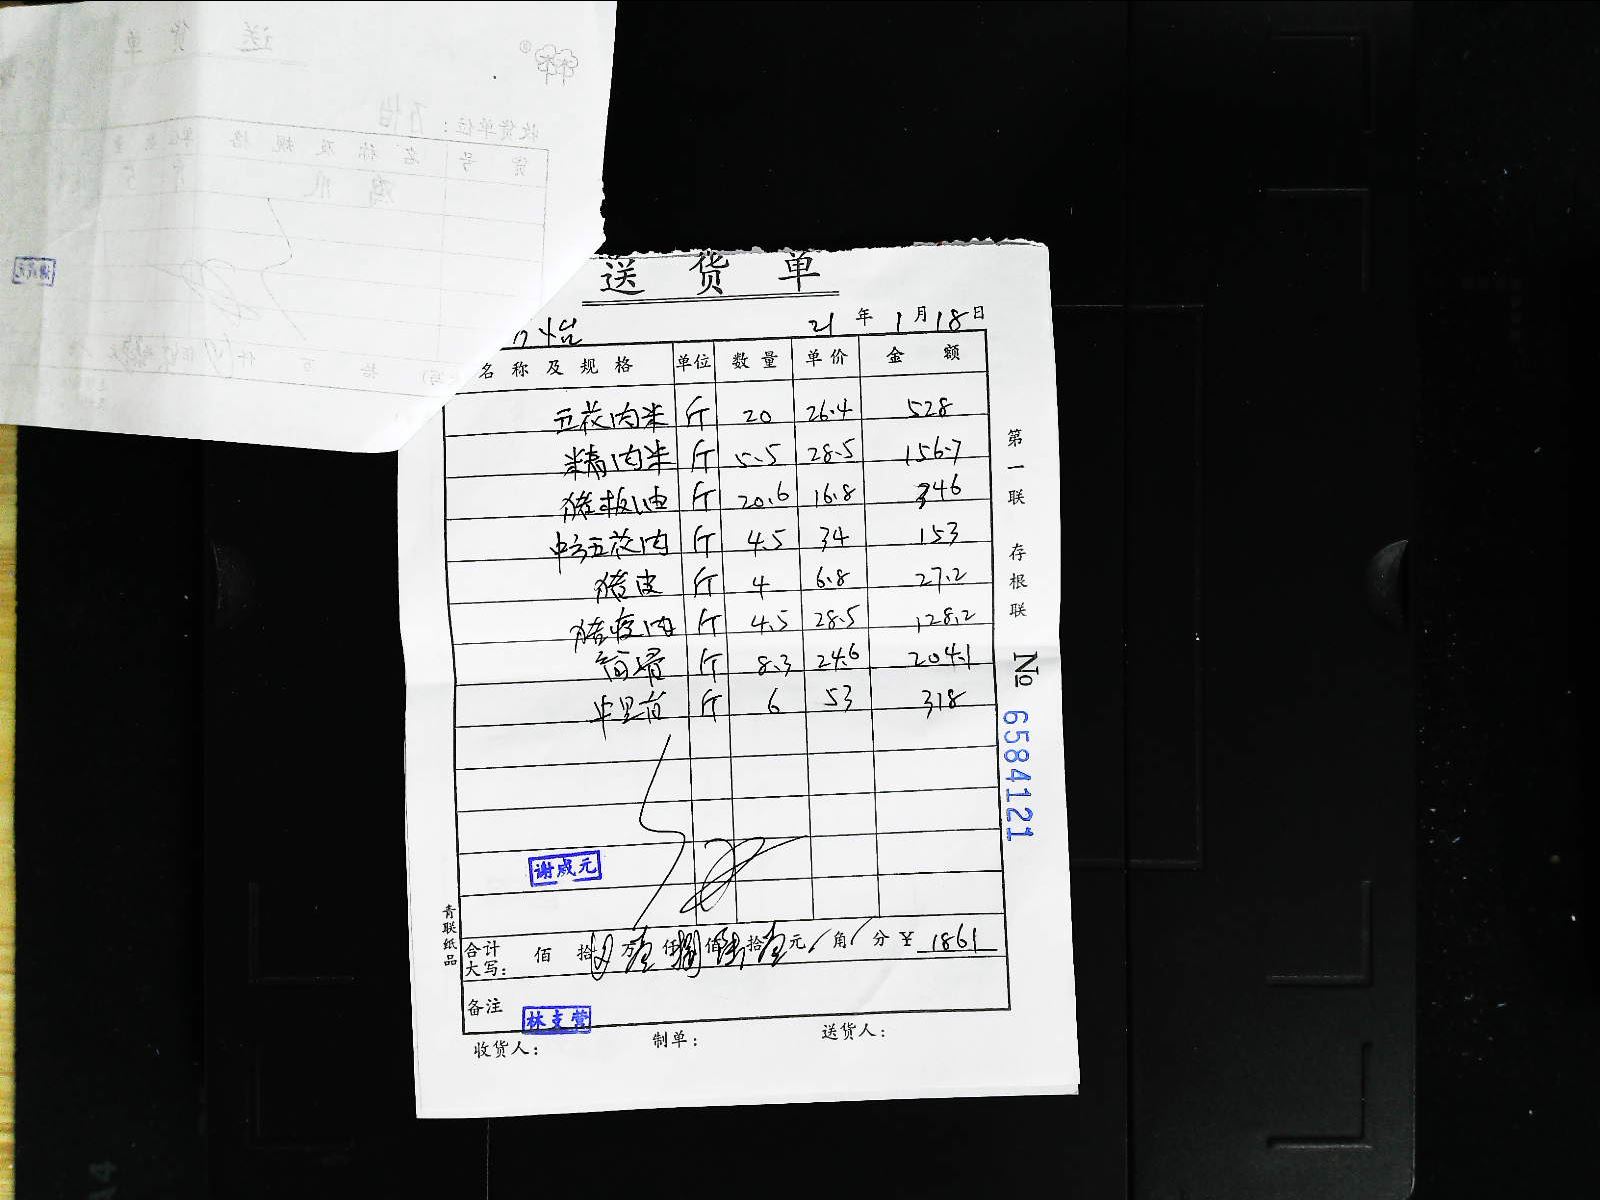 送 货 单
21 年 1 月 18 日
名 称 及 规 格 单位 数 量 单 价 金 额
五花肉米 斤 20 26.4 528
精肉米 斤 5.5 28.5 156.7
猪板油 斤 20.6 16.8 346
中方五花肉 斤 4.5 34 153
猪皮 斤 4 6.8 27.2
猪瘦肉 斤 4.5 28.5 128.2
筒骨 斤 8.3 24.6 204.1
斤 6 53 318
谢成元
合计大写: 佰 拾 万 壹 仟 捌 佰 陆 拾 壹 元 角 分 ¥ 1861
备注
林支营
收货人: 制单: 送货人:
第一联 存根联
№ 6584121
青联纸品
送 货 单
收货单位: 万怡
货 号 名 称 及 规 格 单位 数 量
鸡爪 斤 5